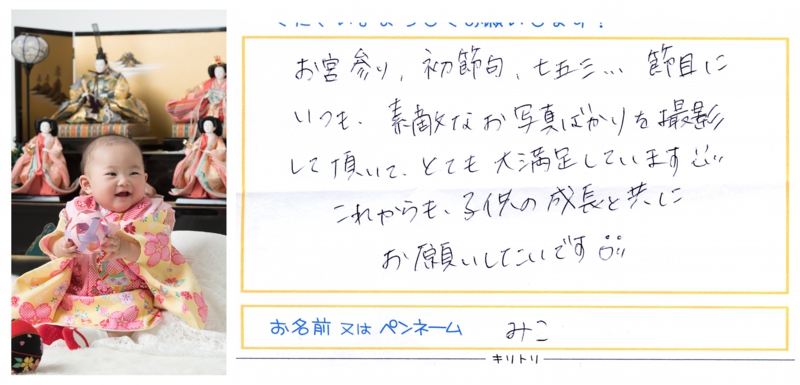 お宮参り、初節句、七五三… 節目に
いつも、素敵なお写真ばかりを撮影
して頂いて、とても大満足しています
これからも、子供の成長と共に
お願いしたいです
お名前 又は ペンネーム みこ
キリトリ